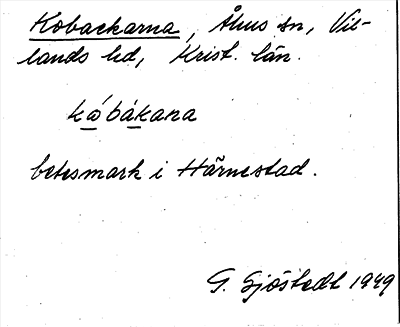 Kobackarna, Åhus sn, Vil-
lands hd, Krist. län.
kóbákana
betesmark i Härnestad.
G. Sjöstedt 1949